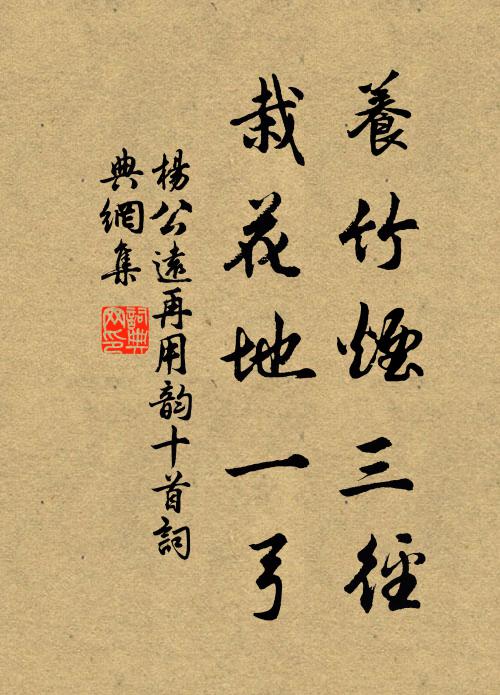 養竹煙三徑
栽花地一弓
楊公遠再用韵十首詞
典網集
詞典
网印